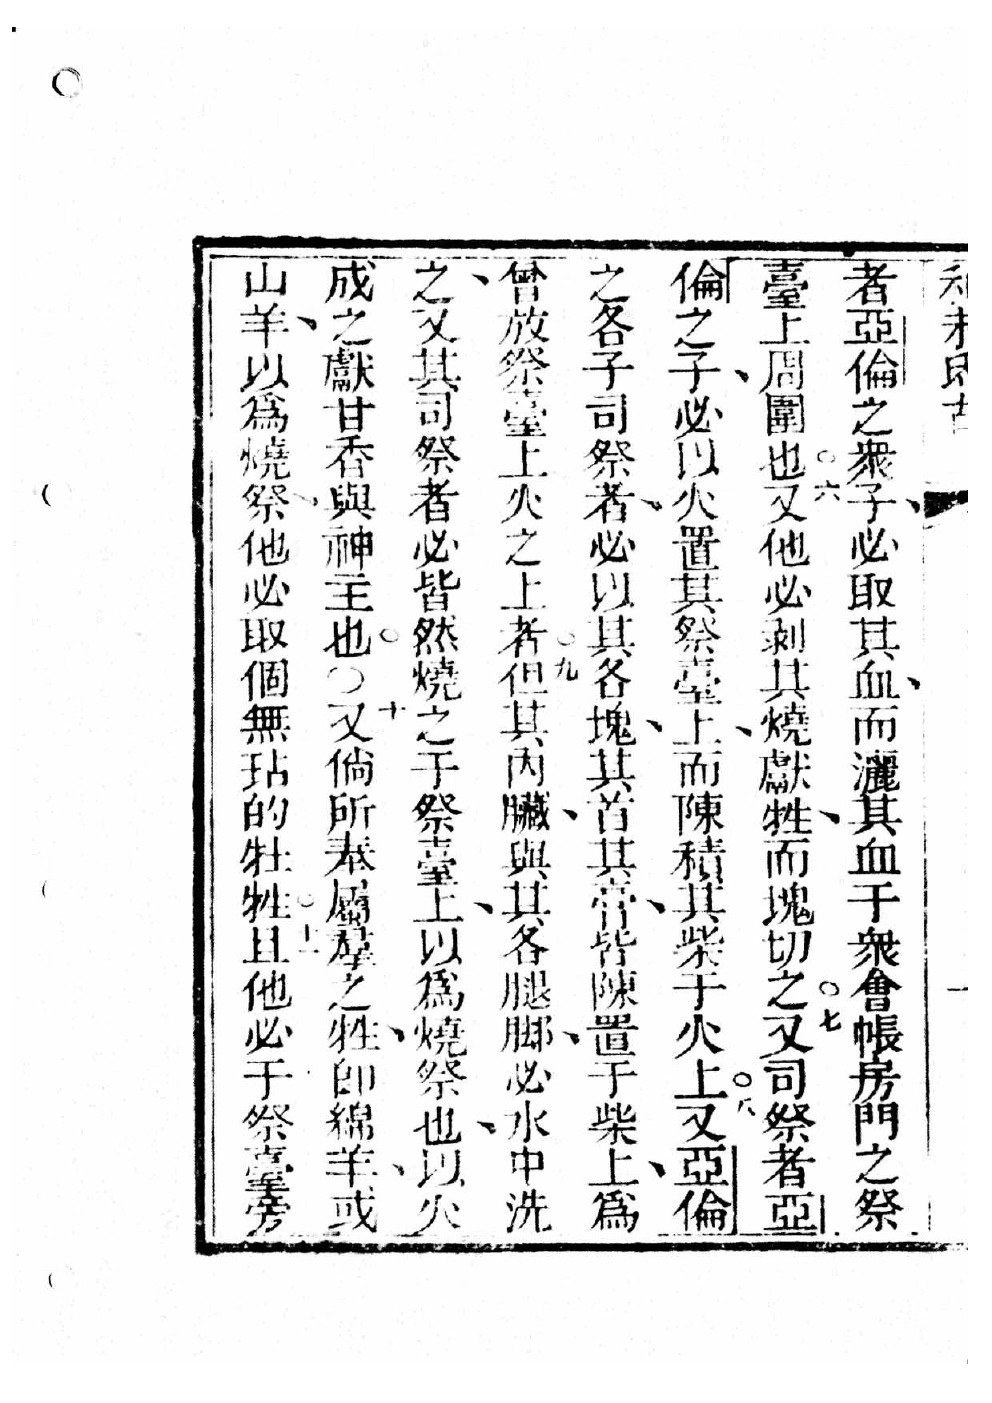 利未氏古
一
者亞倫之衆子、必取其血、而灑其血于衆會帳房門之祭
臺上周圍也○六又他必剥其燒獻牲、而塊切之○七又司祭者亞
倫之子、必以火置其祭臺上、而陳積其柴于火上○八又亞倫
之各子司祭者、必以其各塊、其首其膏、皆陳置于柴上、爲
曾放祭臺上火之上者○九但其內臟、與其各腿脚、必水中洗
之、又其司祭者必皆然燒之于祭臺上、以爲燒祭也、以火
成之獻甘香與神主也○○十又倘所奉屬羣之牲、即綿羊、或
山羊、以爲燒祭、他必取個無玷的牡牲○十一且他必于祭臺旁